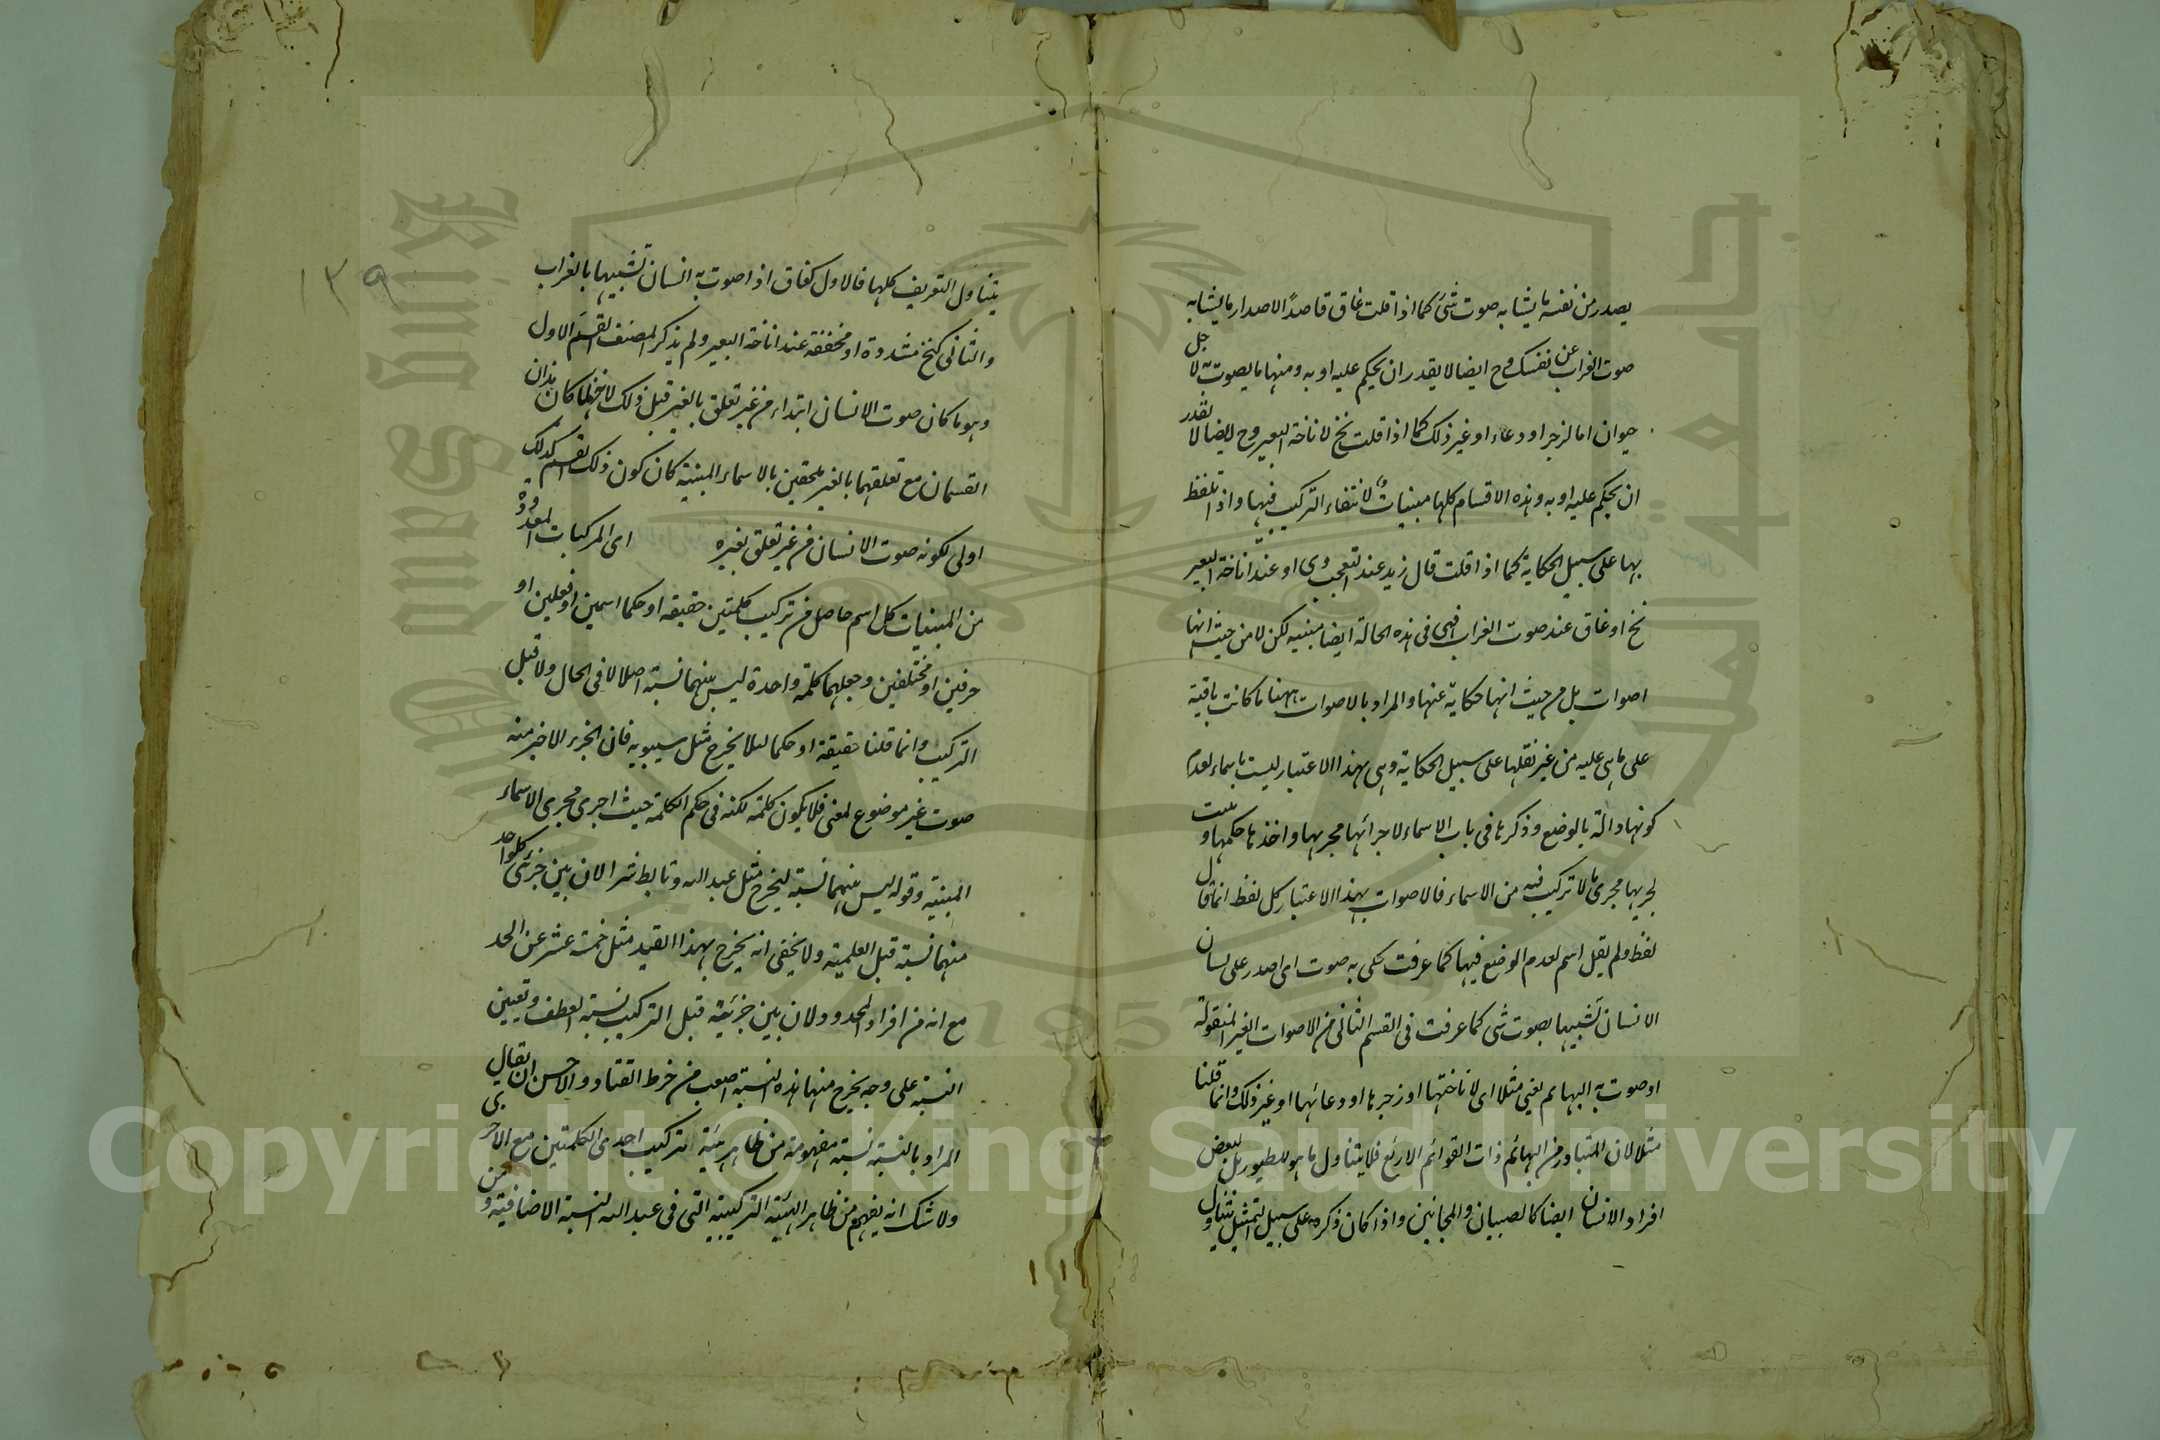 يصدر من نفسه ما يشابه صوت شئ كما اذا قلت غاق قاصدًا الاصدار ما يشابه
صوت الغراب عن نفسك وح ايضا لا يقدر ان يحكم عليه او به ومنها ما يصوت به لاجل
حيوان اما لزجر او دعاء او غير ذلك كما اذا قلت نخ لاناخة البعير وح ايضا لا يقدر
ان يحكم عليه او به وهذه الاقسام كلها مبنيات لانتفاء التركيب فيها واذا تلفظ
بها على سبيل الحكاية كما اذا قلت قال زيد عند التعجب وى او عند اناخة البعير
نخ او غاق عند صوت الغراب فهى فى هذه الحالة ايضا مبنيه لكن لا من حيث انها
اصوات بل من حيث انها حكاية عنها والمراد بالاصوات ههنا ما كانت باقية
على ما هى عليه من غير نقلها على سبيل الحكاية وهى بهذا الاعتبار ليست باسماء لعدم
كونها دالة بالوضع وذكرها فى باب الاسماء لاجرائها مجريها واخذها حكمها و بنيت
لجريها مجرى ما لا تركيب فيه من الاسماء فالاصوات بهذا الاعتبار كل لفظ انما قال
لفظ ولم يقل اسم لعدم الوضع فيها كما عرفت حكى به صوت اى اصدر على لسان
الانسان تشبيها بصوت شى كما عرفت فى القسم الثانى من الاصوات الغير المنقولة
او صوت به البهائم يعنى مثلا اى لاناختها او زجرها او دعائها او غير ذلك وانما قلنا
مثلا لان المتبادر من البهائم ذات القوائم الاربع فلا يتناول ما هو للطيور بل لبعض
افراد الانسان ايضا كالصبيان والمجانين واذا كان ذكره على سبيل التمثيل يتناول
١٣٩
يتناول التعريف كلها فالاول كغاق اذا صوت به انسان تشبيها بالغراب
والثانى كنخ مشددة او مخففة عند اناخة البعير ولم يذكر المصنف القسم الاول
وهو ما كان صوت الانسان ابتداء من غير تعلق بالغير قيل ذلك لانه لما كان هذان
القسمان مع تعلقهما بالغير ملحقين بالاسماء المبنية كان كون ذلك القسم كذلك
اولى لكونه صوت الانسان من غير تعلق بغيره اى المركبات المعدودة
من المبنيات كل اسم حاصل من تركيب كلمتين حقيقة او حكما اسمين او فعلين او
حرفين او مختلفين وجعلهما كلمة واحدة ليس بينهما نسبة اصلا لا فى الحال ولا قبل
التركيب وانما قلنا حقيقة او حكما لئلا يخرج مثل سيبويه فان الجزء الاخير منه
صوت غير موضوع لمعنى فلا يكون كلمة لكنه فى حكم الكلمة حيث اجرى مجرى الاسماء
المبنية وقوله ليس بينهما نسبة ليخرج مثل عبد الله وتابط شرا لان بين جزئى كل واحد
منهما نسبة قبل العلمية ولا يخفى انه يخرج بهذا القيد مثل خمسة عشر عن الحد
مع انه من افراد المحدود لان بين جزئيه قبل التركيب نسبة العطف وتعيين
النسبة على وجه يخرج منها هذه النسبة اصعب من خرط القتاد والاحسن ان يقال
المراد بالنسبة نسبة مفهومة من ظاهر هيئة تركيب احدى الكلمتين مع الاخرى
ولا شك انه يفهم من ظاهر الهيئة التركيبية التى فى عبد الله النسبة الاضافية و من